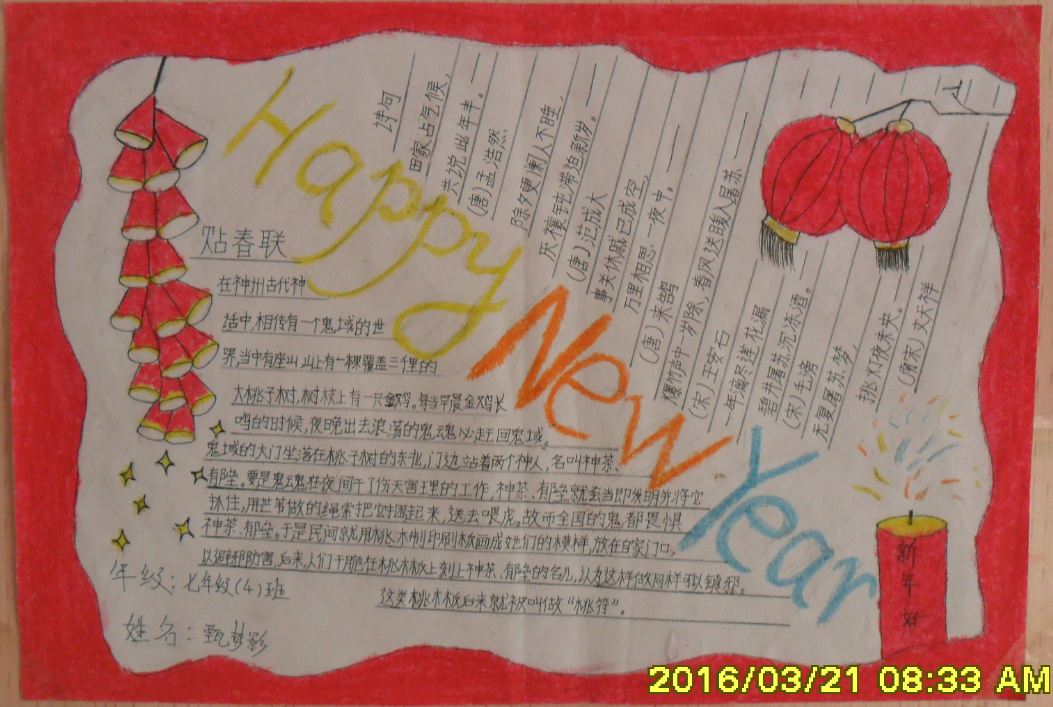 Happy
New
Year
诗句
田家占气候,
共说此年丰。
(唐)孟浩然
除夕更阑人不睡,
厌禳钝滞迫新岁。
(唐)范成大
事关休戚已成空,
万里相思一夜中。
(唐)来鹄
爆竹声中一岁除,春风送暖入屠苏
(宋)王安石
一年滴尽莲花漏
碧井屠苏沉冻酒。
(宋)毛滂
无复屠苏梦,
挑灯夜未央。
(南宋)文天祥
贴春联
在神州古代神
话中,相传有一个鬼域的世
界,当中有座山,山上有一棵覆盖三千里的
大桃子树,树枝上有一只金鸡。每当早晨金鸡长
鸣的时候,夜晚出去浪荡的鬼魂必赶回鬼域。
鬼域的大门坐落在桃子树的东北,门边站着两个神人,名叫神荼、
郁垒。要是鬼魂鬼在夜间干了伤天害理的工作,神荼、郁垒就会当即发明并将它
抓住,用芒苇做的绳索把它捆起来,送去喂虎。故而全国的鬼都畏惧
神荼、郁垒。于是民间就用桃木制印刷板画成她们的模样,放在自家门口,
以避邪防害,后来人们干脆在桃木板上刻上神荼、郁垒的名儿,认为这样做同样可以镇邪。
这类桃木板后来就被叫做“桃符”。
年级:七年级(4)班
姓名:甄梦影
新年好
2016/03/21 08:33 AM